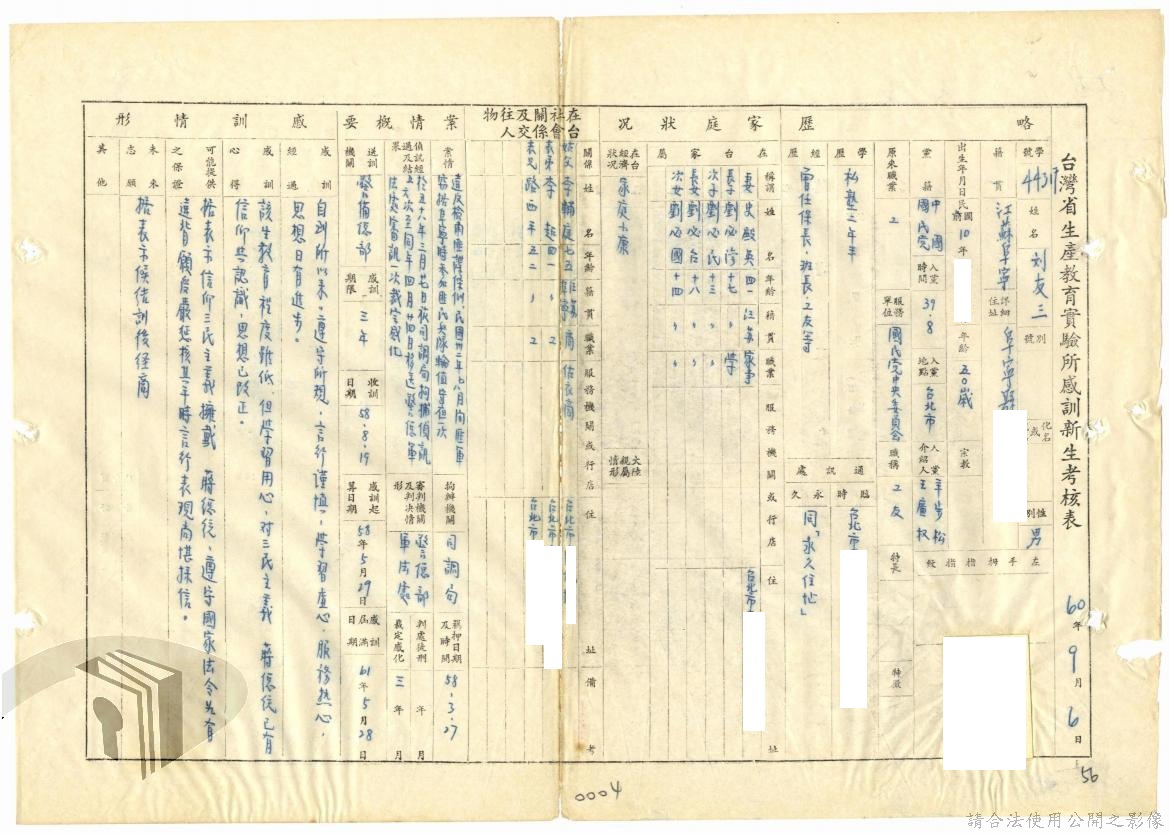 台灣省生產教育實驗所感訓新生考核表
60年9月6日
略歷
學號 443
姓名 刘友三
別號
化名或
性別 男
籍貫 江蘇阜寧
詳細住址 阜寧縣
左手拇指指紋
出生年月日 民國前10年
年齡 五〇歲
宗教
黨籍 中國國民党
入黨時間 39.8
入黨地點 台北市
入黨介紹人 辛步松 王廣权
原來職業 工
服務單位 國民党中央委員会
職稱 工友
特長
特徵
學歷 私塾二年半
經歷 曾任保長、班長、工友等
通訊處
臨時 台北市
永久 同「永久住址」
家庭狀況
在台家屬
稱謂 姓名 年齡 籍貫 職業 服務機關或行店 住址
妻 史殿英 四一 江苏 家事 台北市
長子 劉必 十七 〃 學
次子 劉必民 十三 〃 〃
長女 劉必台 十八 〃 〃
次女 劉必國 十四 〃 〃
在台經濟狀況 家庭小康
大陸親屬情形
在台社會關係及交往人物
關係 姓名 年齡 籍貫 職業 服務機關或行店 住址 備考
李輔庭 七五 商 估衣商 台北市
表弟 李起 四一 〃 工 台北市
表兄 路西平 五二 〃 工 台北市
案情概要
案情
偵訊經過及結果
拘辦機關 司調局
羈押日期及時間 58.3.27
審判機關及判決情形 警总部軍法處
判處徒刑 年 月
裁定感化 三年 月
送訓機關 警備總部
感訓期限 三年
收訓日期 58.8.19
感訓起算日期 58年5月29日
感訓屆滿日期 61年5月28日
感訓情形
感訓經過 自到所以来，遵守所規，言行謹慎，學習虛心，服務热心，
思想日有進步。
感訓心得 該生教育程度雖低，但學習用心，对三民主義 蔣總统已有
信仰与認識，思想已改正。
可能提供之保證 據表示信仰三民主義擁戴 蔣總统，遵守國家法令如有
違背願受嚴惩核其平時言行表現尚堪採信。
未來志願 據表示候结訓後经商
其他
0004
56
請合法使用公開之影像